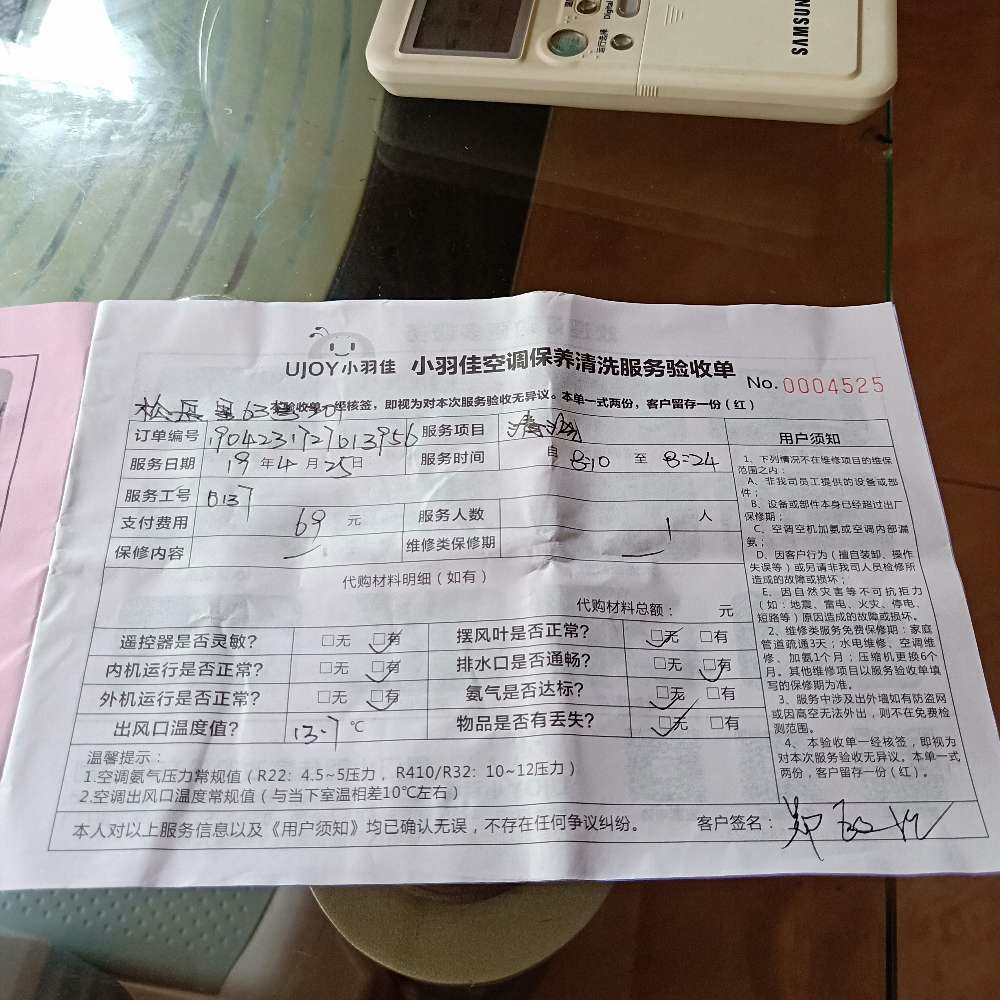 运行选择
Digital
SAMSUNG
UJOY小羽佳 小羽佳空调保养清洗服务验收单
No.0004525
本验收单一经核签，即视为对本次服务验收无异议。本单一式两份，客户留存一份（红）
订单编号 1904231727013956 服务项目 清洗
服务日期 19 年 4 月 25 日 服务时间 自 8:10 至 8:24
服务工号 0137
支付费用 69 元 服务人数 1 人
保修内容 — 维修类保修期 —
代购材料明细（如有）
代购材料总额： 元
遥控器是否灵敏? □无 □有 摆风叶是否正常? □无 □有
内机运行是否正常? □无 □有 排水口是否通畅? □无 □有
外机运行是否正常? □无 □有 氨气是否达标? □无 □有
出风口温度值? 13.7 ℃ 物品是否有丢失? □无 □有
温馨提示：
1.空调氨气压力常规值（R22：4.5~5压力，R410/R32：10~12压力）
2.空调出风口温度常规值（与当下室温相差10℃左右）
本人对以上服务信息以及《用户须知》均已确认无误，不存在任何争议纠纷。 客户签名：
用户须知
1、下列情况不在维修项目的维保
范围之内：
A、非我司员工提供的设备或部
件；
B、设备或部件本身已经超过出厂
保修期；
C、空调空机加氨或空调内部漏
氨；
D、因客户行为（擅自装卸、操作
失误等）或另请非我司人员检修所
造成的故障或损坏；
E、因自然灾害等不可抗拒力
（如：地震、雷电、火灾、停电、
短路等）原因造成的故障或损坏。
2、维修类服务免费保修期：家庭
管道疏通3天；水电维修、空调维
修、加氨1个月；压缩机更换6个
月。其他维修项目以服务验收单填
写的保修期为准。
3、服务中涉及出外墙如有防盗网
或因高空无法外出，则不在免费检
测范围。
4、本验收单一经核签，即视为
对本次服务验收无异议。本单一式
两份，客户留存一份（红）。